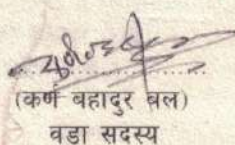 (कर्ण बहादुर बल)
वडा सदस्य